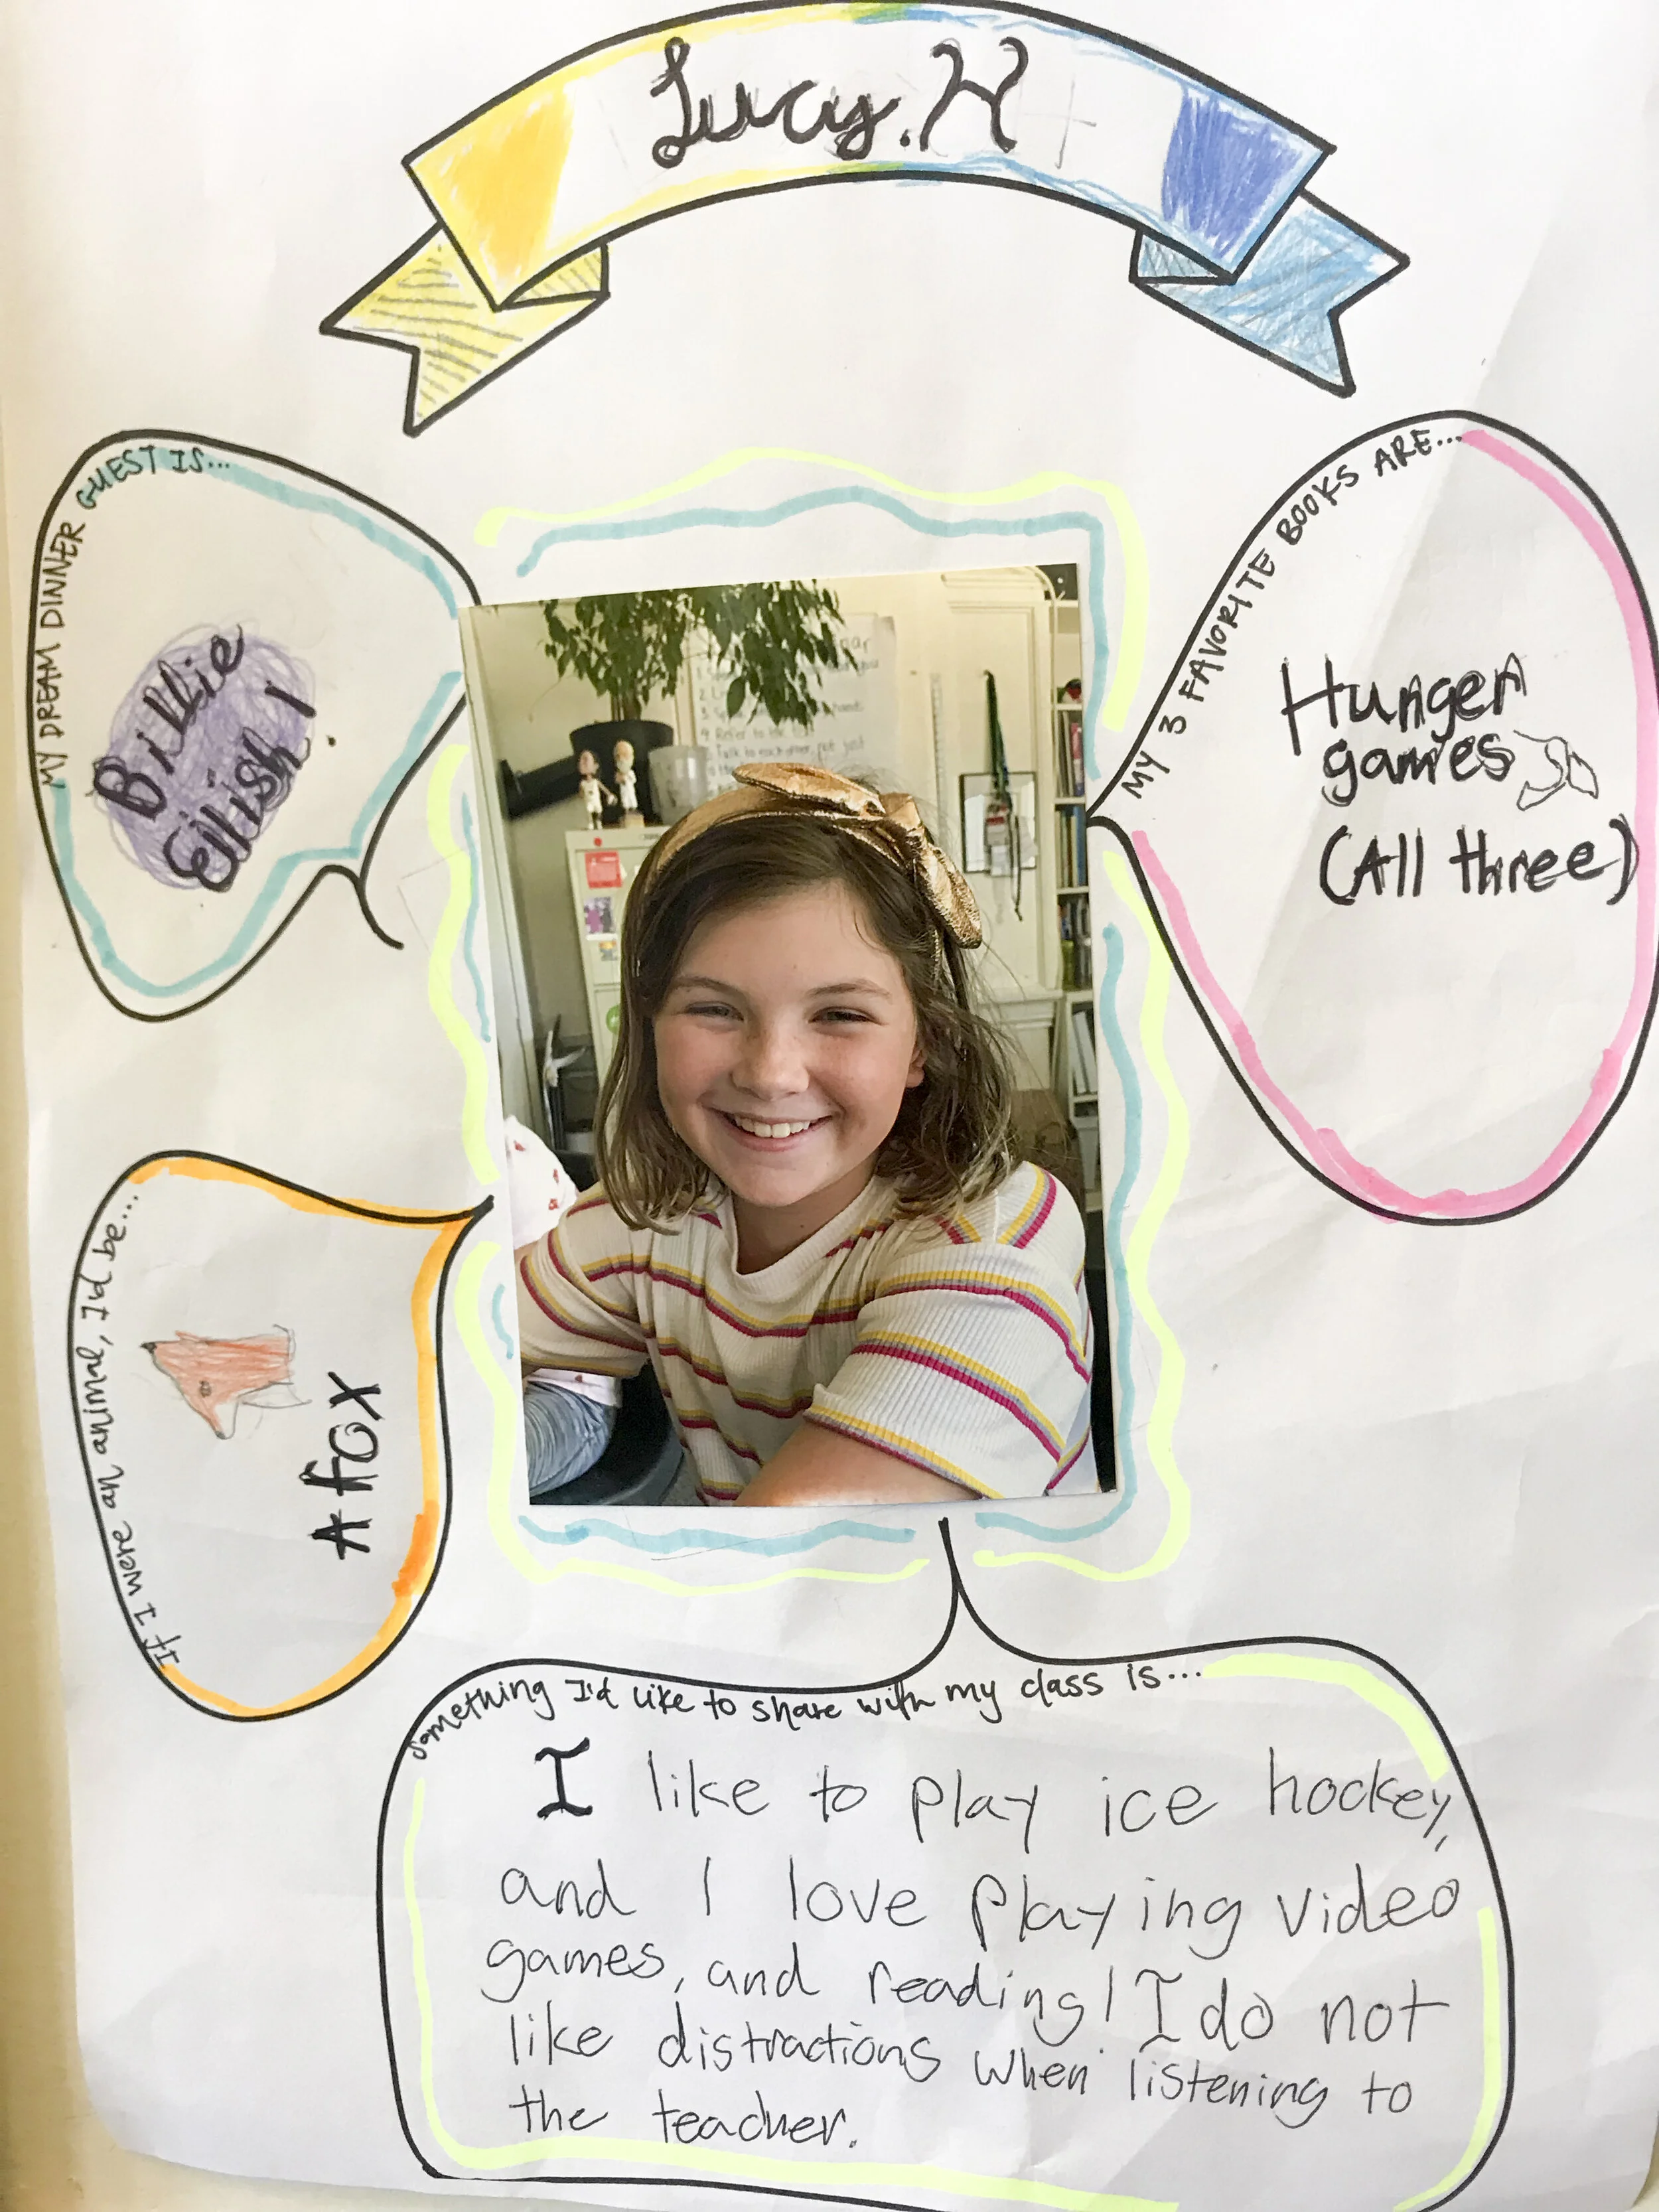 Lucy.H
MY DREAM DINNER GUEST IS...
Billie
Eilish!
MY 3 FAVORITE BOOKS ARE...
Hunger
games
(All three)
If I were an animal, I'd be...
A fox
Something I'd like to share with my class is...
I like to play ice hockey,
and I love playing video
games, and reading! I do not
like distractions when listening to
the teacher.